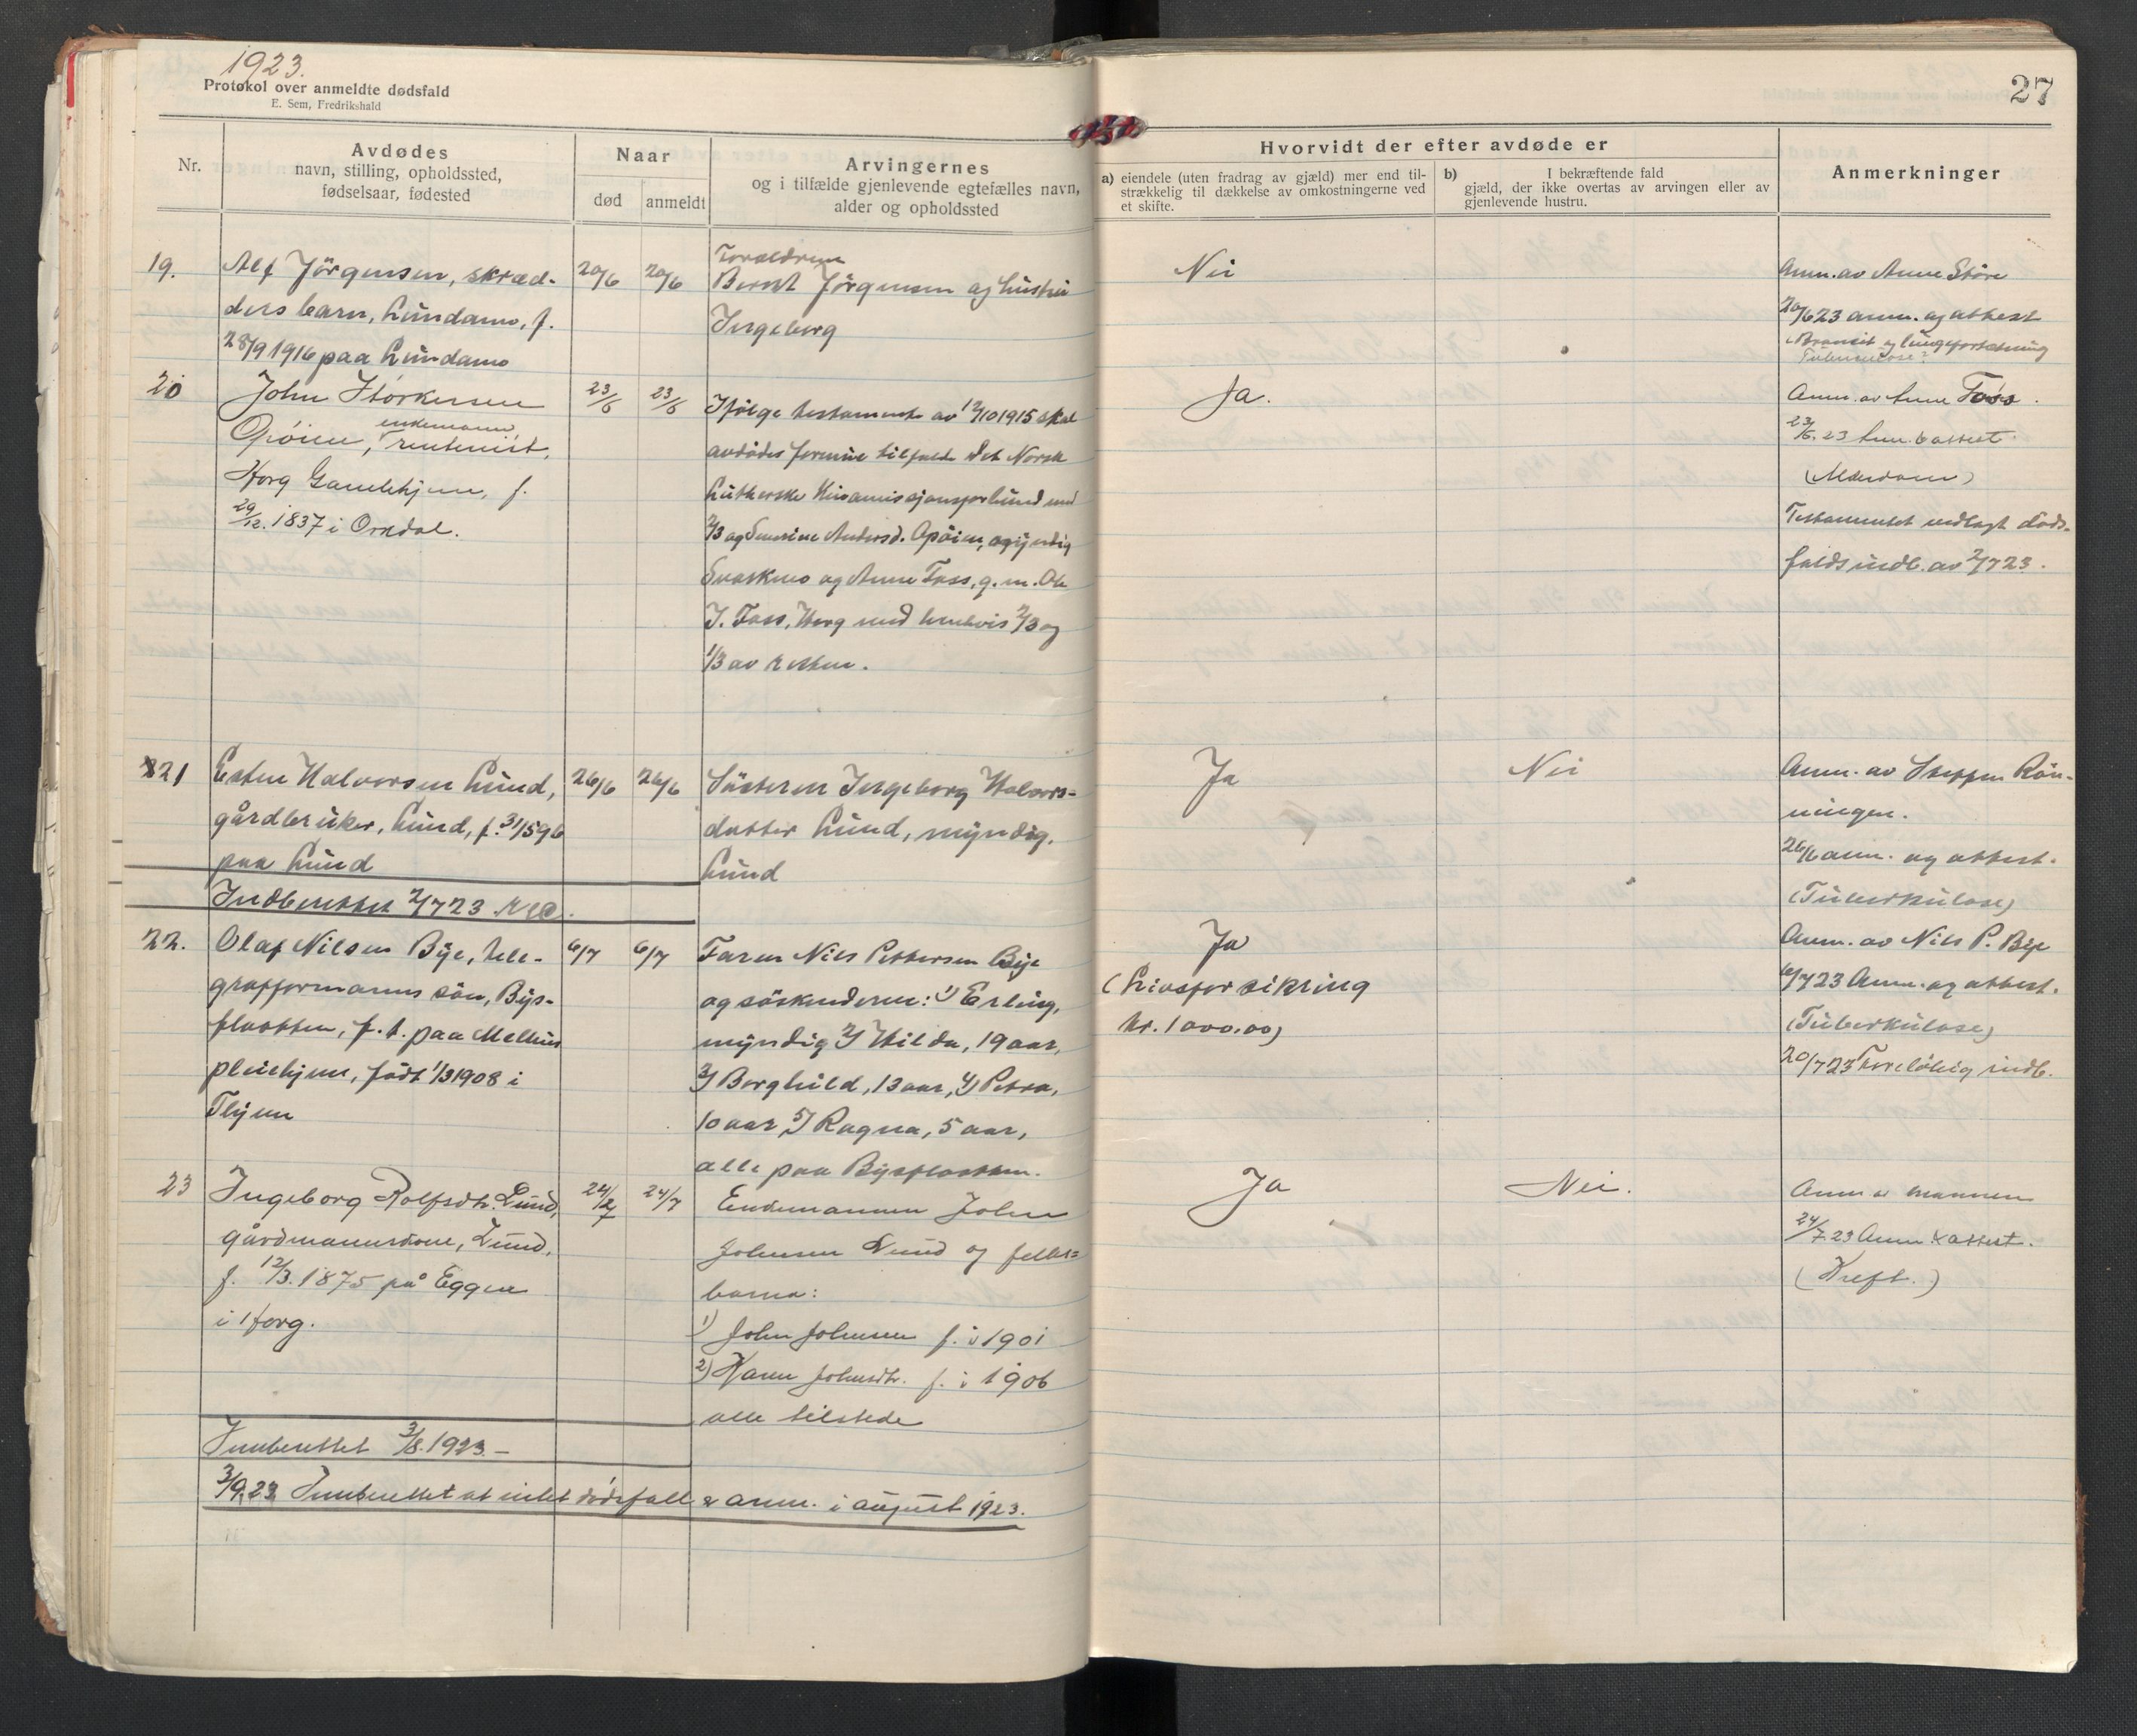 1923.
Protokol over anmeldte dødsfald
E. Sem, Fredrikshald
27
Nr.
Avdødes
navn, stilling, opholdssted,
fødselsaar, fødested
Naar
død
anmeldt
Arvingernes
og i tilfælde gjenlevende egtefælles navn,
alder og opholdssted
Hvorvidt der efter avdøde er
a) eiendele (uten fradrag av gjæld) mer end til-
strækkelig til dækkelse av omkostningerne ved
et skifte.
b) I bekræftende fald
gjæld, der ikke overtas av arvingen eller av
gjenlevende hustru.
Anmerkninger
19.
Alf Jörgensen, skræd-
ders barn, Lundamo, f.
28/9 1916 paa Lundamo
20/6
20/6
Forældrene
Bernt Jörgensen og hustru
Ingeborg
Nei
Anm. av Anne Støre
20/6 23 anm. og attest
20
John Størkersen
enkemann
, rentenist,
Horg Gamlehjem, f.
29/12. 1837 i Orkdal.
23/6
23/6
Ifölge testamente av 12/10 1915 skal
avdödes formue tilfalde Det Norsk
Lutherske Kinamissjonsforbund med
2/3 og Severine Andersd. Opöien, 
og Anne Foss, g. m. Ole
J. Foss, Horg med henhvis 2/3 og
1/3 av resten.
Ja.
Anm. av Anne Foss.
23/6. 23 Anm. & attest.
(Alderdom)
Testamentet vedlagt döds-
faldsindb. av 2/7 23.
21
Esten Halvorsen Lund,
gårdbruker, Lund, f. 31/5 96
paa Lund
26/6
26/6
Søsteren Ingeborg Halvors-
datter Lund, myndig,
Lund
Ja
Nei
Anm. av Steffen Rön-
ningen.
26/6 anm. og attest.
(Tuberkulose)
Indberettet 2/7 23.
22.
Olaf Nilsen Bye, tele-
grafformanns sön, Bys-
flaatten, f. t. paa Melhus
pleiehjem, födt 1/3 1908 i
Flejm
6/7
6/7
Faren Nils Pettersen Bye
og söskenderne: 1) Erling,
myndig 2) Hilda, 19 aar,
3) Borghild, 13 aar, 4) Petra,
10 aar 5) Ragna, 5 aar,
alle paa Bysflaatten.
Ja
(Livsforsikring
kr. 1000.00)
Anm. av Nils P. Bye
6/7 23 Anm. og attest.
(Tuberkulose)
20/7 23 Foreløbig indb.
23
Ingeborg Rolfsdtr. Lund,
gårdmannskone, Lund,
f. 12/3. 1875 på Eggen
i Horg.
24/7
24/7
Enkemannen John
Johnsen Lund og felles-
barna:
1) John Johnsen f. i 1901
2) Karen Johnsdtr. f. i 1906
alle tilstede
Ja
Nei.
Anm av mannen
24/7 23 Anm & attest.
(Kreft.)
Innberettet 3/8. 1923. –
3/9. 23 Innberettet at intet dödsfall er anm. i august 1923.